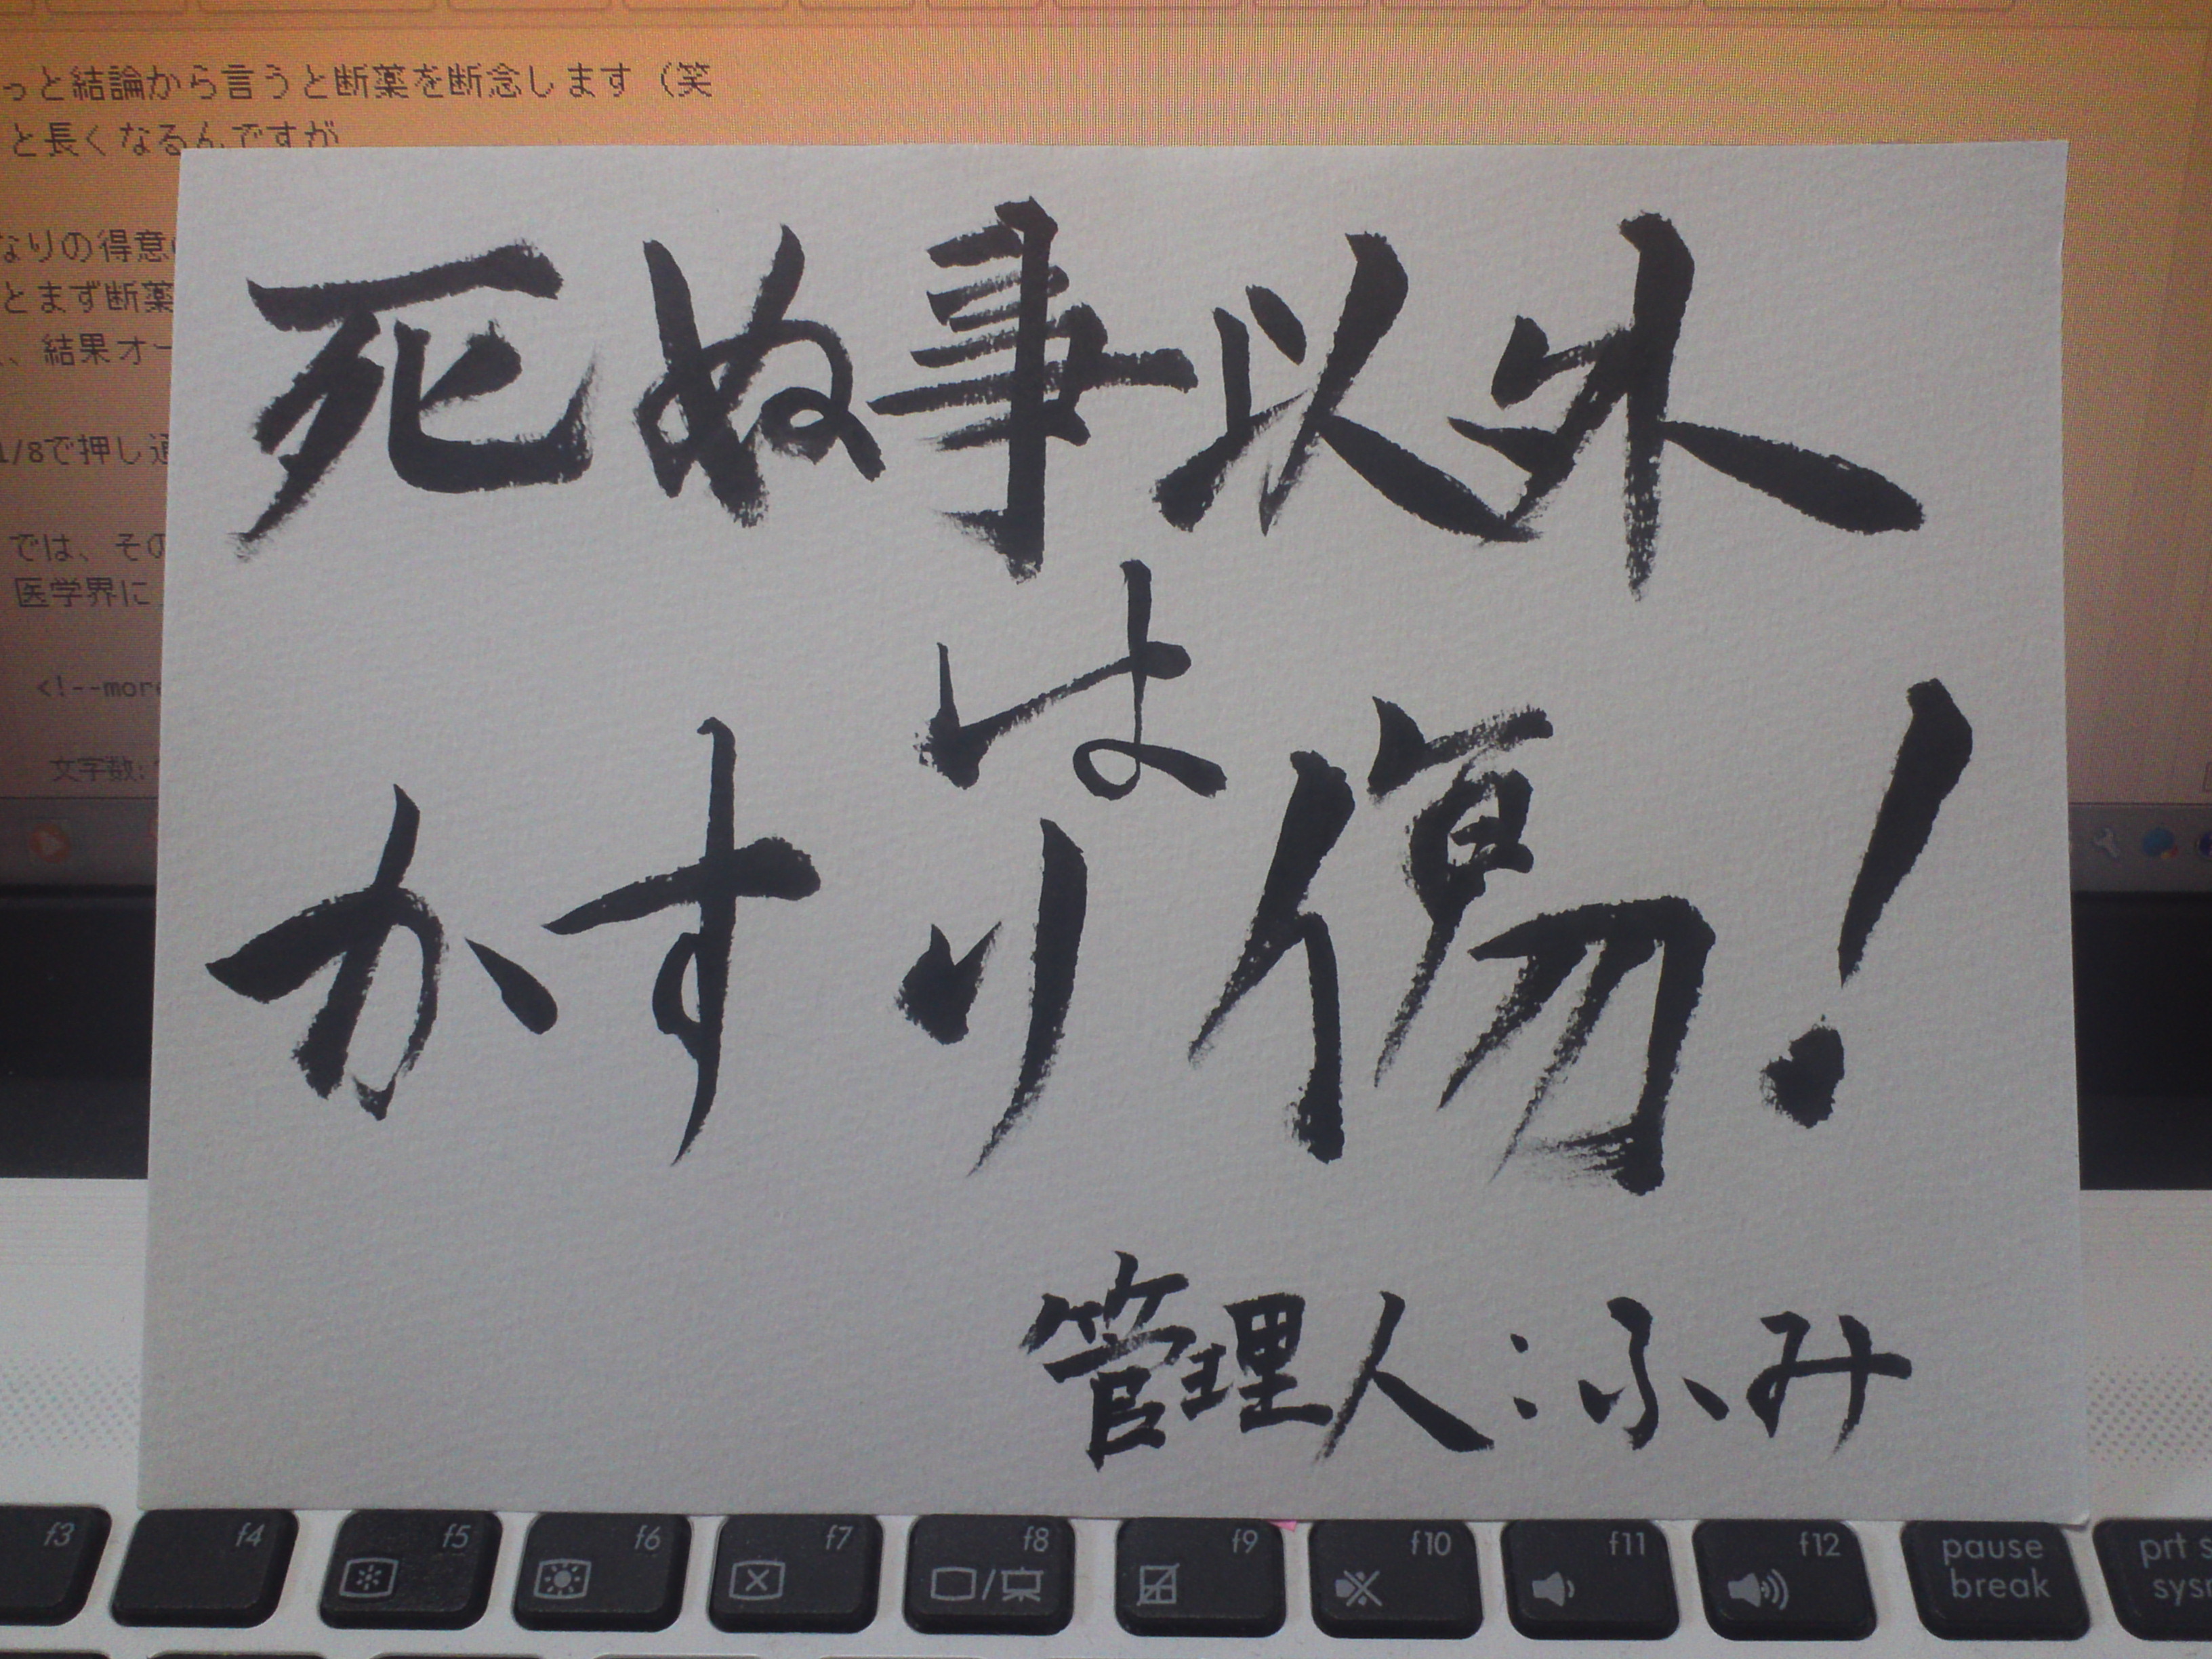 っと結論から言うと断薬を断念します（笑
と長くなるんですが
なりの得意
とまず断薬
、結果オー
1/8で押し通
では、その
医学界に
<!--more
文字数:
死ぬ事以外
は
かすり傷!
管理人:ふみ
f3 f4 f5 f6 f7 f8 f9 f10 f11 f12 pause break prt s sys